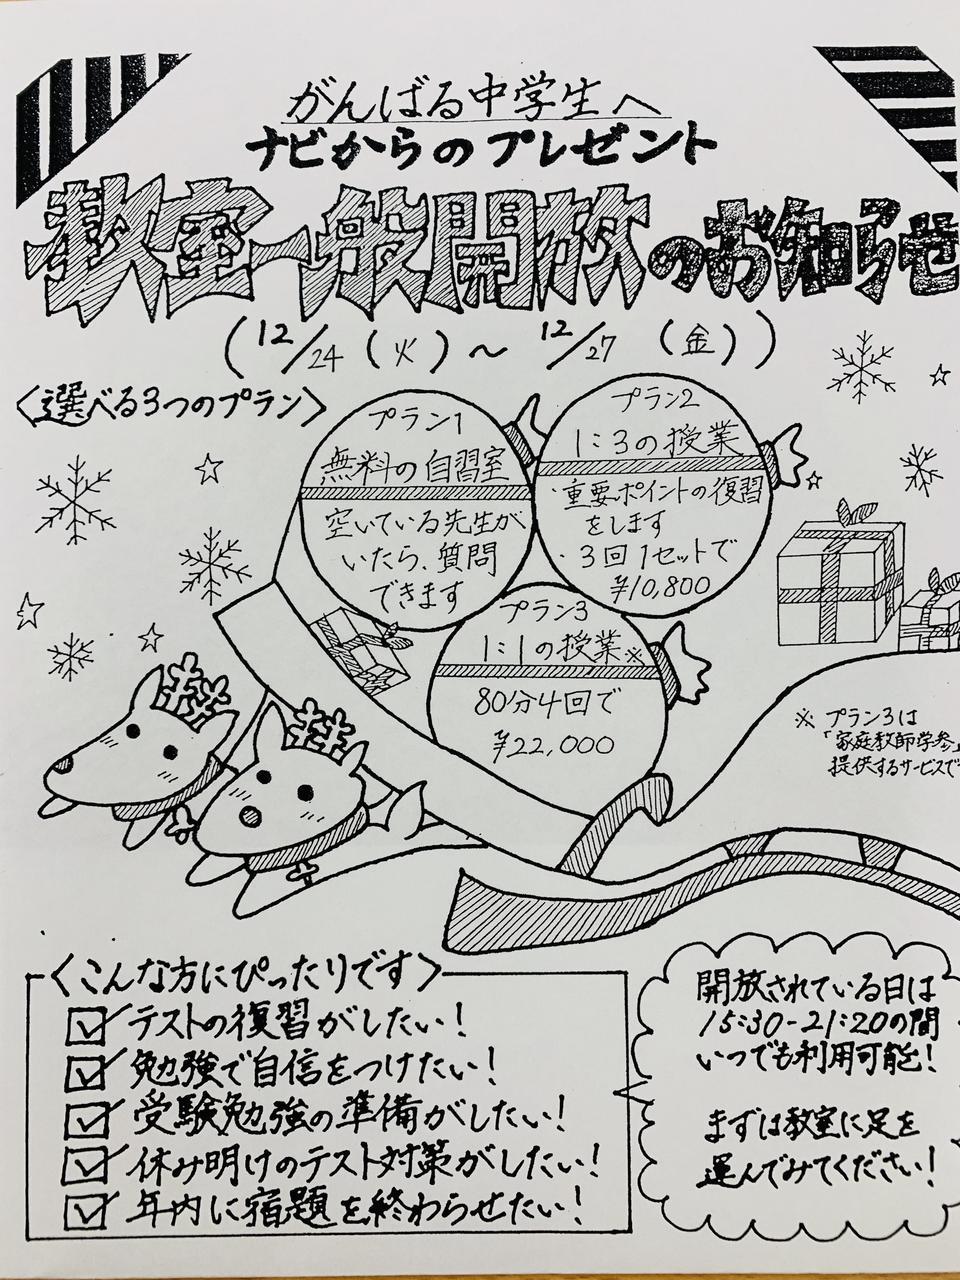 がんばる中学生へ
ナビからのプレゼント
教室一般開放のお知らせ
(12/24(火)～12/27(金))
〈選べる3つのプラン〉
プラン1
無料の自習室
空いている先生が
いたら、質問
できます
プラン2
1:3の授業
・重要ポイントの復習
をします
・3回1セットで
¥10,800
プラン3
1:1の授業※
80分4回で
¥22,000
※プラン3は
「家庭教師学参」
提供するサービスで
〈こんな方にぴったりです〉
☑テストの復習がしたい!
☑勉強で自信をつけたい!
☑受験勉強の準備がしたい!
☑休み明けのテスト対策がしたい!
☑年内に宿題を終わらせたい!
開放されている日は
15:30-21:20の間
いつでも利用可能!
まずは教室に足を
運んでみてください!